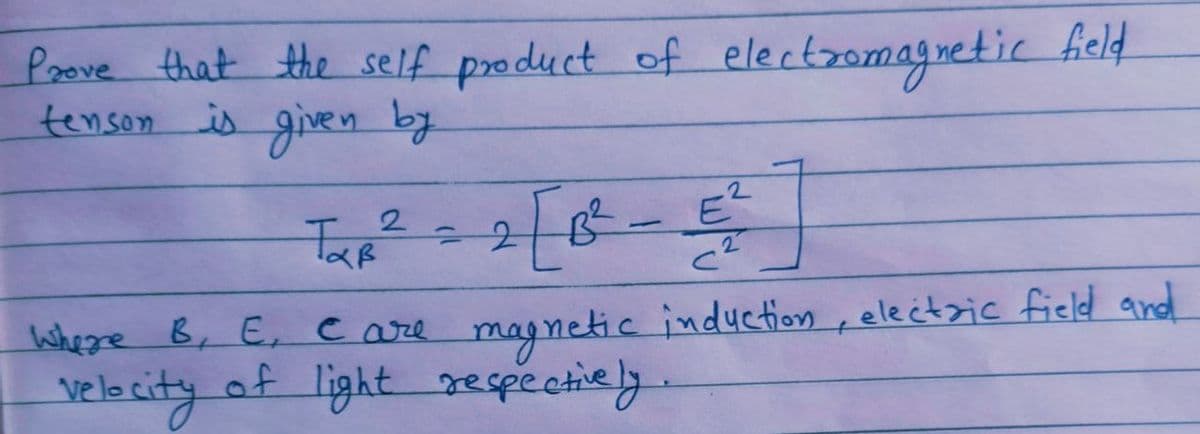 Prove that the self product of electromagnetic field
tenson is given by
Tαβ² = 2[B² - E²/c²]
Where B, E, c are magnetic induction, electric field and
velocity of light respectively.